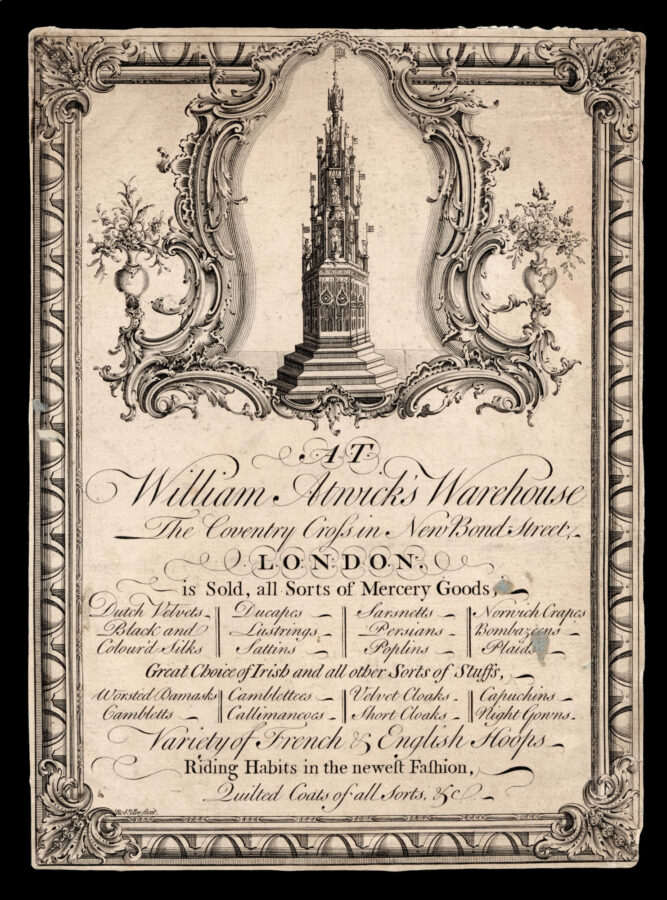 AT
William Atwick's Warehouse
The Coventry Croſs in New Bond Street,
LONDON,
is Sold, all Sorts of Mercery Goods,
Dutch Velvets | Ducapes | Sarsnetts | Norwich Crapes
Black and | Lustrings | Persians | Bombazeens
Colour'd Silks | Sattins | Poplins | Plaids
Great Choice of Irish and all other Sorts of Stuffs,
Worsted Damasks | Camblettees | Velvet Cloaks | Capuchins
Cambletts | Callimancoes | Short Cloaks | Night Gowns
Variety of French & English Hoops
Riding Habits in the neweſt Faſhion,
Quilted Coats of all Sorts, &c